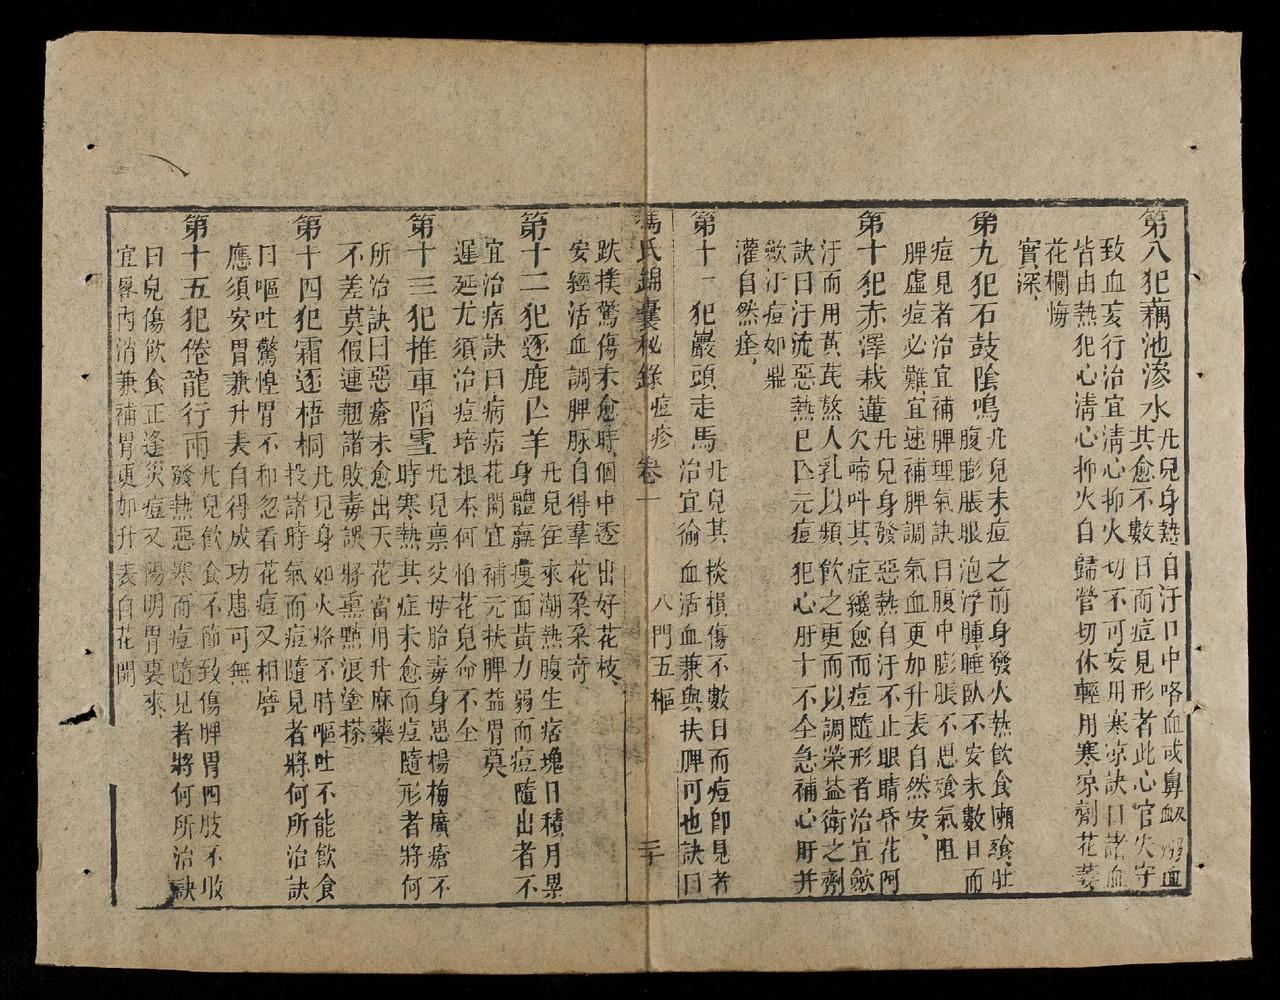 第八犯藕池滲水凡兒身熱自汗口中咯血或鼻衂溺血
其愈不數日而痘見形者此心官失守
致血妄行治宜清心抑火切不可妄用寒凉訣曰諸血
皆由熱犯心清心抑火自歸營切休輕用寒凉劑花萎
花欄悔
實深
第九犯石鼓陰鳴凡兒未痘之前身發火熱飲食懶飡肚
腹膨脹眼泡浮腫睡臥不安未數日而
痘見者治宜補脾理氣訣曰腹中膨脹不思飡氣阻
脾虛痘必難宜速補脾調氣血更加升表自然安
第十犯赤澤栽蓮凡兒身發惡熱自汗不止眼睛昏花阿
欠啼呌其症纔愈而痘隨形者治宜歛
汗而用黃茋熬人乳以頻飲之更而以調榮益衛之劑
訣曰汗流惡熱巳亾元痘犯心肝十不全急補心肝并
歛汗痘如鼎
灌自然痊
第十一犯巖頭走馬凡兒其揬損傷不數日而痘卽見者
治宜徐血活血兼與扶脾可也訣曰
馮氏錦囊秘錄 痘疹 卷一 八門五樞 三十
跌撲驚傷未愈時個中透出好花枝
安經活血調脾脉自得羣花朶朶奇
第十二犯逐鹿亾羊凡兒往來潮熱腹生痞塊日積月累
身體羸瘦而黃力弱而痘隨出者不
宜治痞訣曰病痞花開宜補元扶脾益胃莫
遲延尤須治痘培根本何怕花兒命不全
第十三犯推車陷雪凡兒禀父母胎毒身患楊梅廣瘡不
時寒熱其症未愈而痘隨形者將何
所治訣曰惡瘡未愈出天花當用升麻藥
不差莫假連翹諸敗毒誤將熏㸃浪塗搽
第十四犯霜逐梧桐凡兒身如火烙不時嘔吐不能飲食
投諸時氣而痘隨見者將何所治訣
曰嘔吐驚惶胃不和忽看花痘又相磨
應須安胃兼升表自得成功患可無
第十五犯倦龍行雨凡兒飲食不節致傷脾胃四肢不收
發熱惡寒而痘隨見者將何所治訣
曰兒傷飲食正逢災痘又陽明胃裏來
宜畧內消兼補胃更加升表自花開